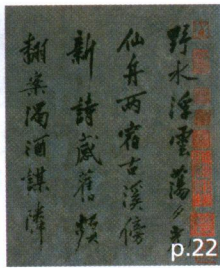 野水浮雲蕩夕
仙舟兩宿古溪傍
新詩感舊頻
濁酒謀
p.22